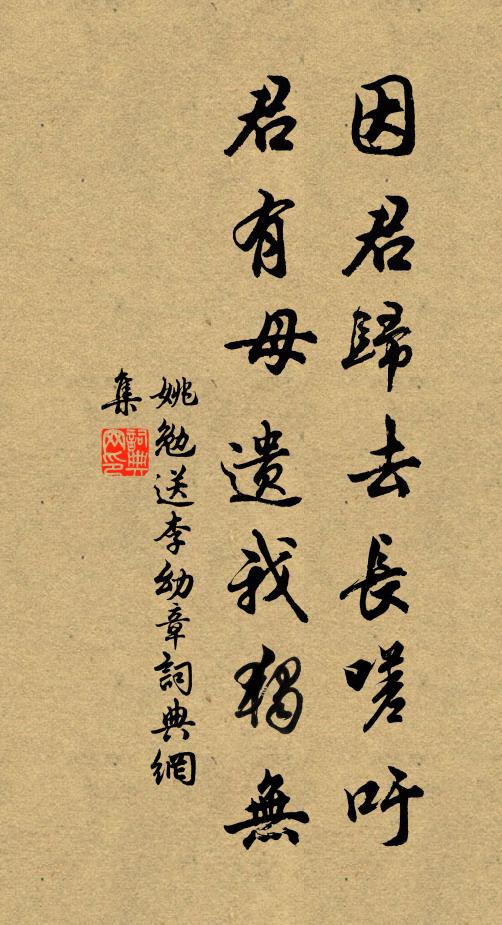 因君歸去長嗟吁
君有母遺我獨無
姚勉送李幼章詞典網
集
詞典
網印